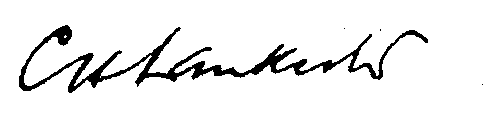 C H Lankester